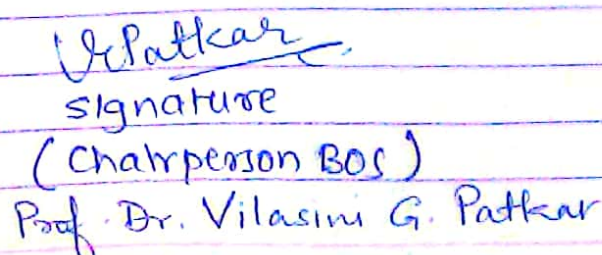 VPatkar
signature
(Chairperson BOS)
Prof. Dr. Vilasini G. Patkar